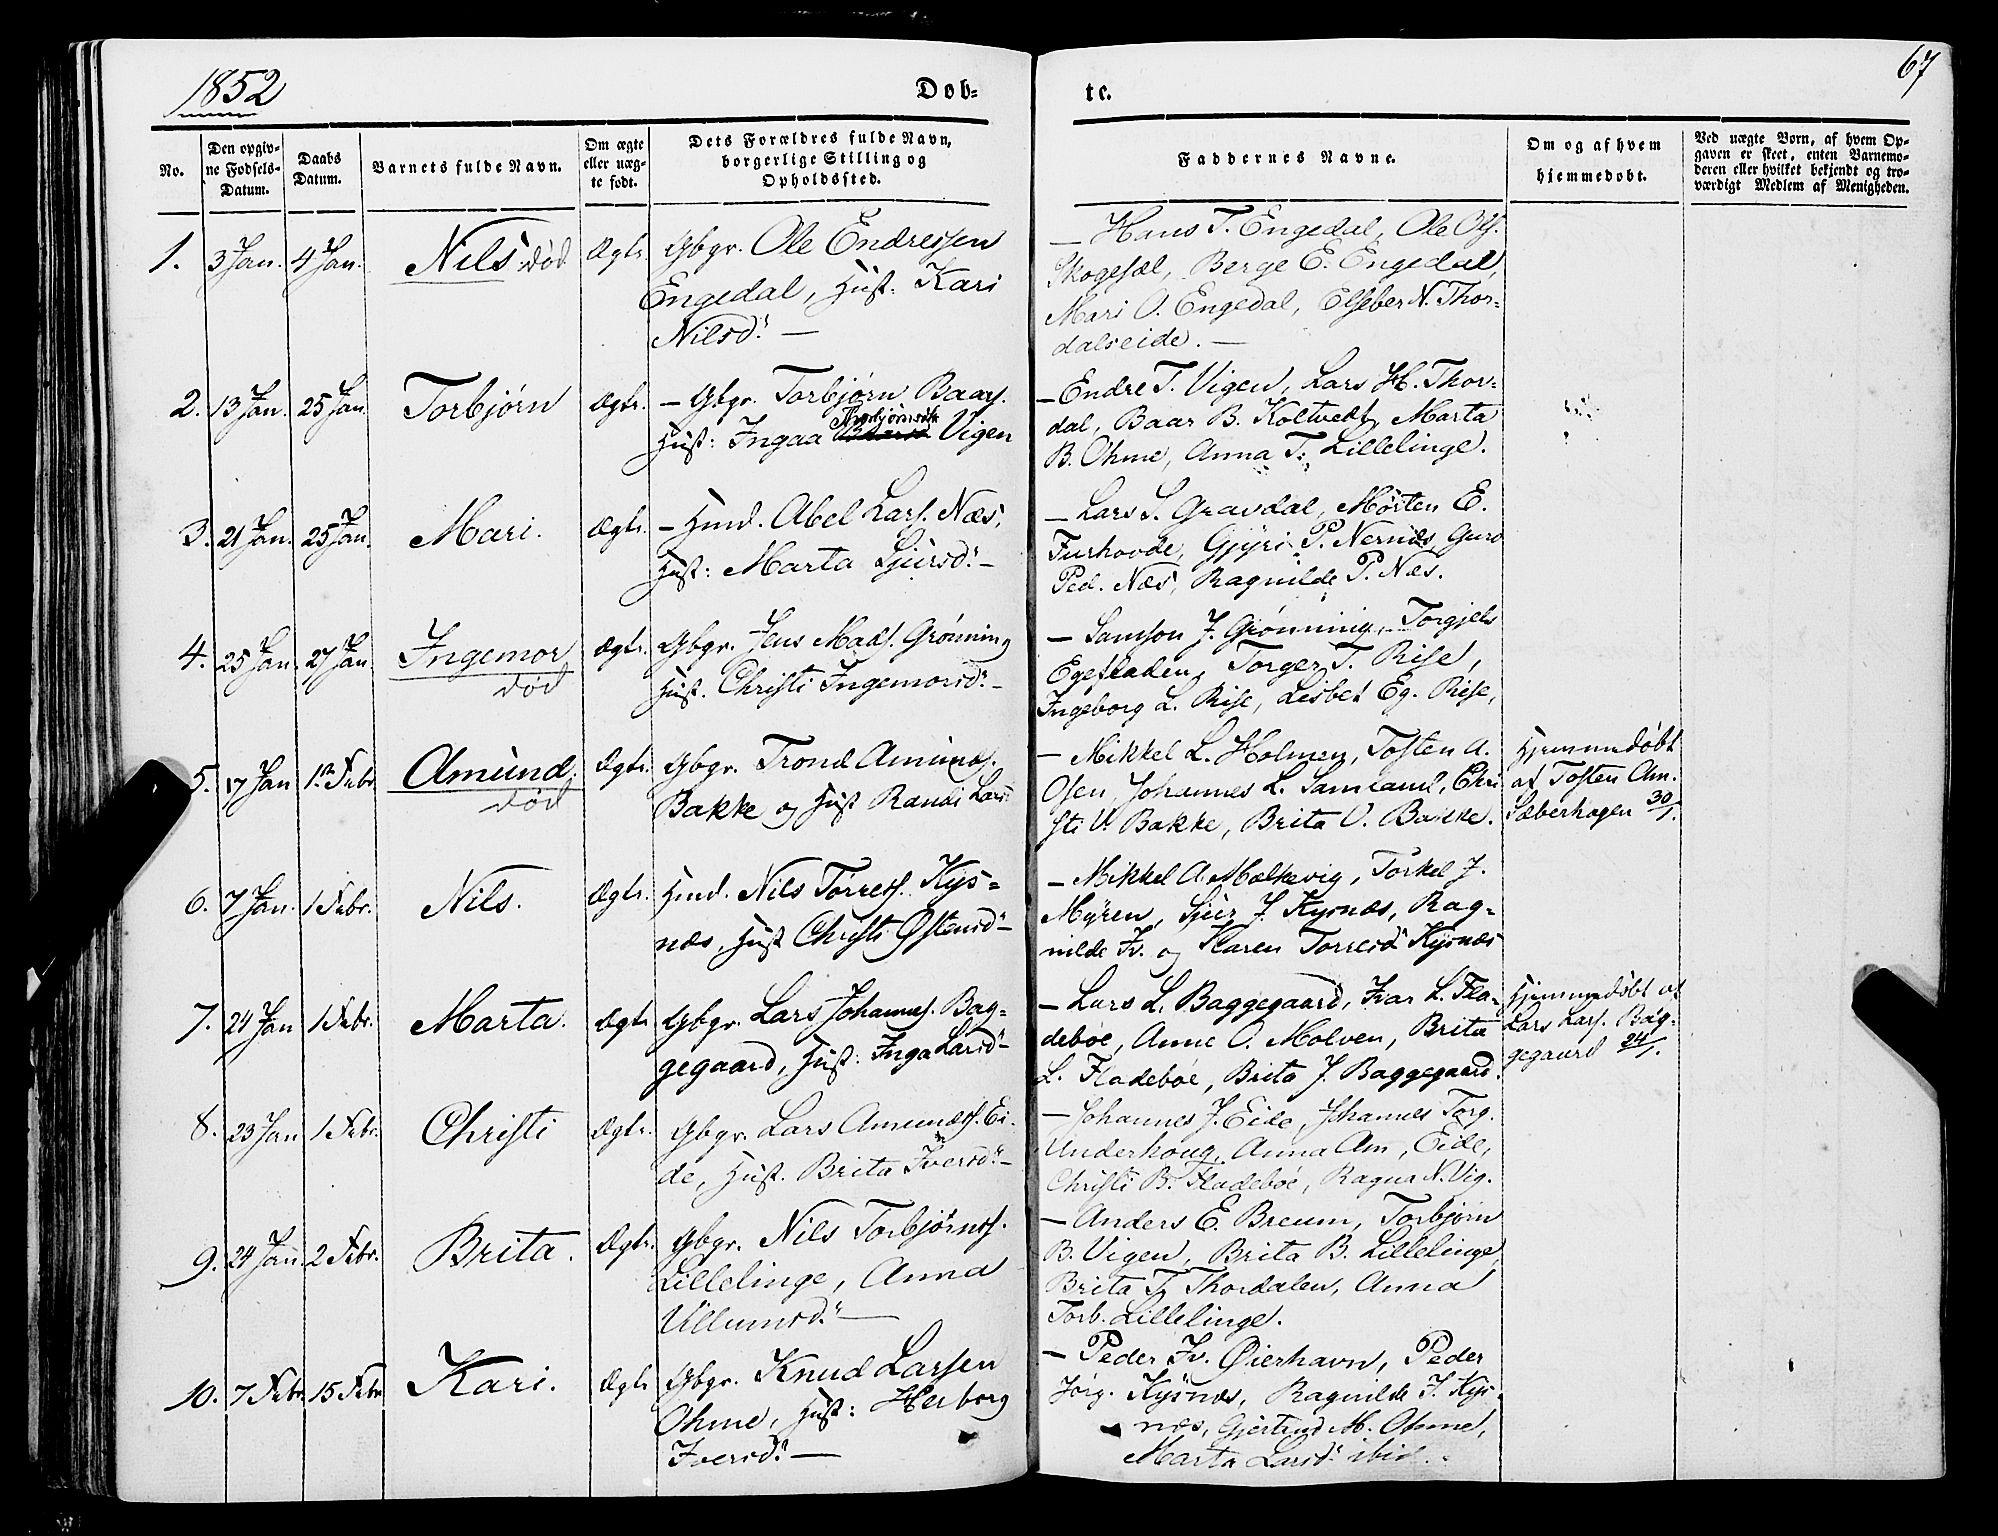 1852
67
Døb-
te.
No.
Den opgiv-
ne Fødsels-
Datum.
Daabs
Datum.
Barnets fulde Navn.
Om ægte
eller uæg-
te født.
Dets Forældres fulde Navn,
borgerlige Stilling og
Opholdssted.
Faddernes Navne.
Om og af hvem
hjemmedøbt.
Ved uægte Børn, af hvem Op-
gaven er skeet, enten Barnemo-
deren eller hvilket bekjendt og tro-
værdigt Medlem af Menigheden.
1. 3 Jan. 4 Jan. Nils død Ægte. Gbgr. Ole Endressen
Engedal, Hust. Kari
Nilsd. —
— Hans T. Engedal, Ole Ols.
Skogesæl, Berge E. Engedal,
Mari O. Engedal, Elseber N. Thor-
dalseide. —
2. 13 Jan. 25 Jan. Torbjørn Ægte. — Gbgr. Torbjørn Baars.
Hust: Ingaa Vigen
— Endre T. Vigen, Lars H. Thor-
dal, Baar B. Koltvedt, Marta
B. Ohme, Anna T. Lillelinge.
3. 21 Jan. 25 Jan. Mari. Ægte. — Hmd. Abel Lars. Næs,
Hust: Marta Sjursd. —
— Lars S. Gravdal, Mørten E.
Furhovde, Gjyri P. Nernæs, Guro
Ped. Næs, Ragnilde P. Næs.
4. 25 Jan. 27 Jan. Ingemor død Ægte. Gbgr. Jens Mads. Grønning
Hust. Christi Ingemorsd. —
— Samson J. Grønning, Torgjels
Egesladen, Torger T. Rise,
Ingeborg L. Rise, Lisbet Eg. Rise,
5. 17 Jan 1ste Febr Amund. død Ægte. Gbgr. Trond Amunds.
Bakke og Hust Randi Lars
— Mikkel L. Holmen, Tosten A.
Osen, Johannes L. Samland, Chri
sti V. Bakke, Brita O. Bakke.
Hjemmedøbt
af Tosten Am.
Sæberhagen 30/1.
6. 7 Jan. 1 Febr. Nils. Ægte. Hmd. Nils Torres. Kys-
næs, Hust Christi Østensd —
— Mikkel A. Mælkevig, Torkel J.
Myren, Sjur J. Kysnæs, Rag-
nilde Iv. og Karen Torresd Kysnæs
7. 24 Jan 1 Febr. Marta. Ægte Gbgr. Lars Johannes. Bag-
gegaard, Hust: Inga Larsd —
— Lars L. Baggegaard, Ivar L. Fla-
debøe, Anne O. Molven, Brita
L. Fladebøe, Brita J. Baggegaard.
Hjemmedøbt af
Lars Lars. Bag-
gegaard 24/1.
8. 23 Jan 1 Febr. Christi Ægte. Gbgr. Lars Amunds. Ei-
de, Hust. Brita Iversd. —
— Johannes J. Eide, Johannes Torg.
Underhoug, Anna Am, Eide,
Christi B. Fladebøe, Ragna N. Vig.
9. 24 Jan 2 Febr. Brita. Ægte. Gbgr. Nils Torbjørns.
Lillelinge, Anna
Villumsd. —
— Anders E. Breum, Torbjørn
B. Vigen, Brita B. Lillelinge,
Brita T. Thordalen, Anna
Torb. Lillelinge.
10. 7 Febr 15 Febr Kari. Ægte Gbgr. Knud Larsen
Ohme, Hust: Herborg
Iversd. —
— Peder Iv. Øierhavn, Peder
Jørg. Kysnæs, Ragnilde I. Kys-
næs, Gjertrud M. Ohme,
Marta Larsd. ibid.